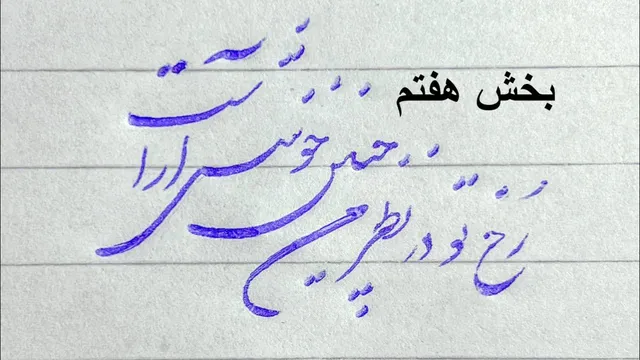 بخش هفتم
رُخ تو در نظر من چنین خوشش آراست